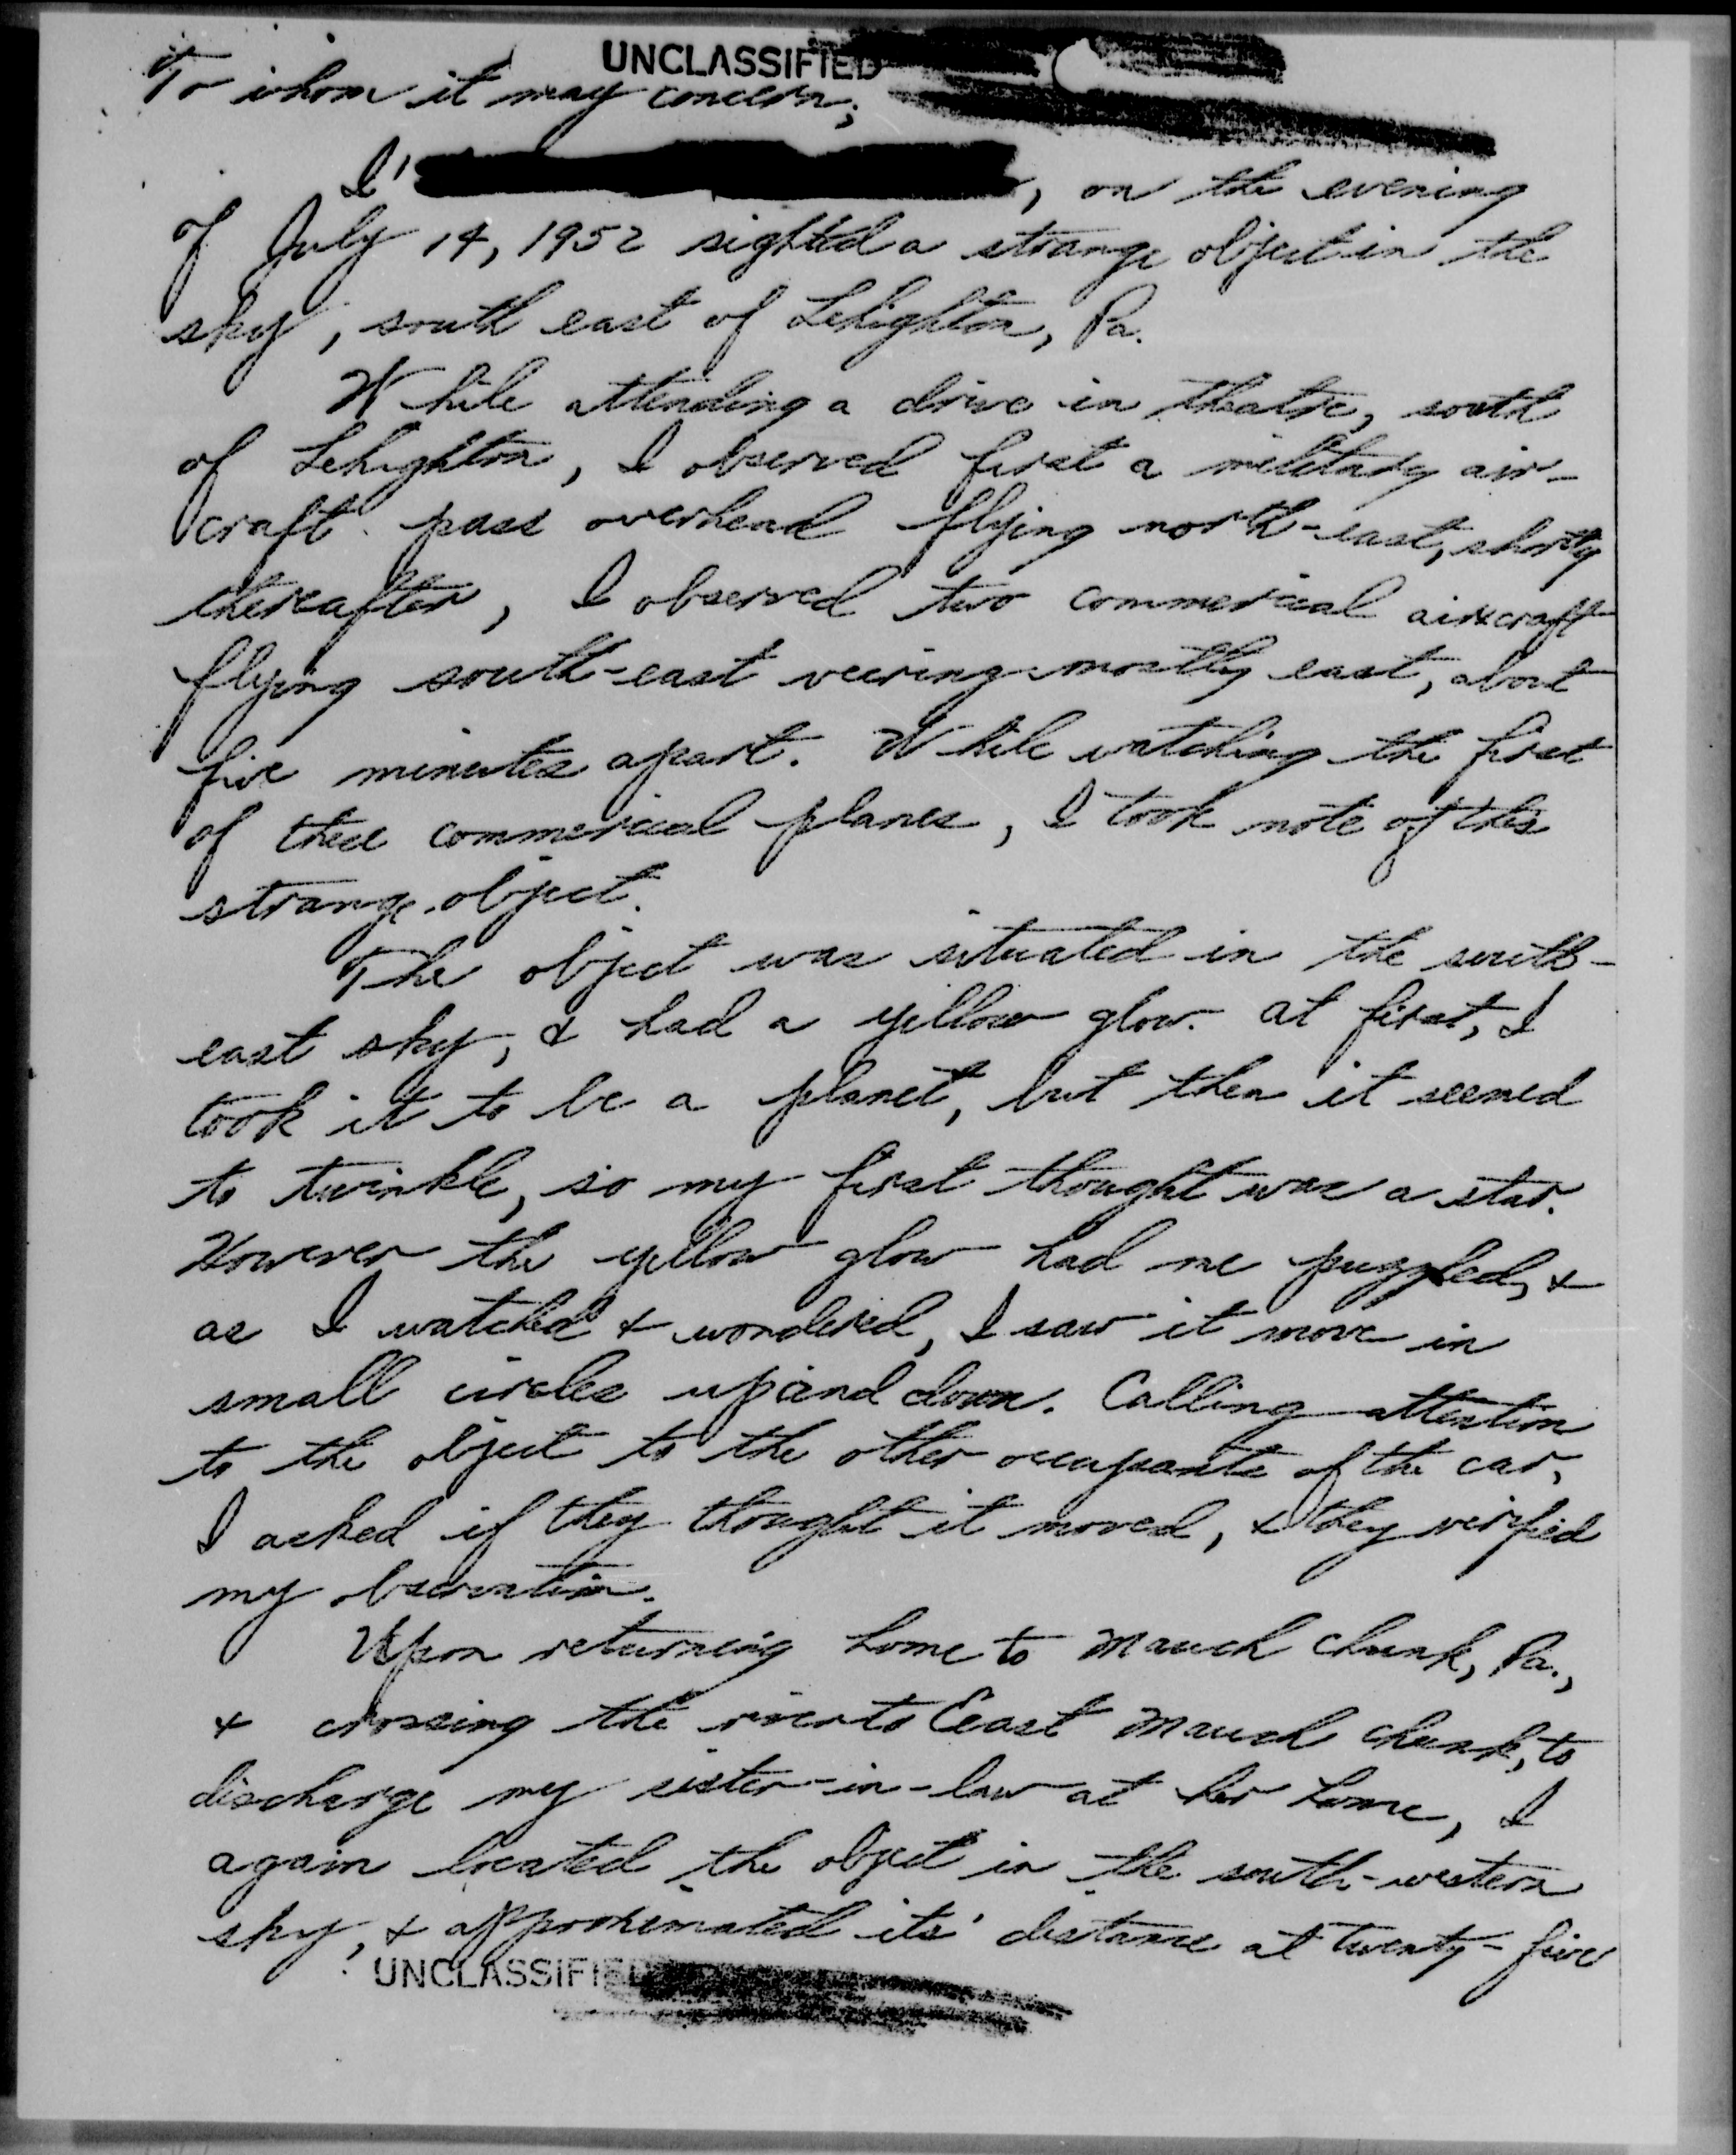 UNCLASSIFIED
To whom it may concern;
I, on the evening
of July 14, 1952 sighted a strange object in the
sky, south east of Lehighton, Pa.
While attending a drive in theatre, south
of Lehighton, I observed first a military air-
craft pass overhead flying north-east, shortly
thereafter, I observed two commercial aircraft
flying south-east veering mostly east, about
five minutes apart. While watching the first
of these commercial planes, I took note of this
strange object.
The object was situated in the south-
east sky, & had a yellow glow. At first, I
took it to be a planet, but then it seemed
to twinkle, so my first thought was a star.
However the yellow glow had me puzzled, &
as I watched & wondered, I saw it move in
small circles up and down. Calling attention
to the object to the other occupants of the car,
I asked if they thought it moved, & they verified
my observation.
Upon returning home to Mauch Chunk, Pa.,
& crossing the river to East Mauch Chunk, to
discharge my sister-in-law at her home, I
again located the object in the south-western
sky, & approximated its' distance at twenty-five
UNCLASSIFIED